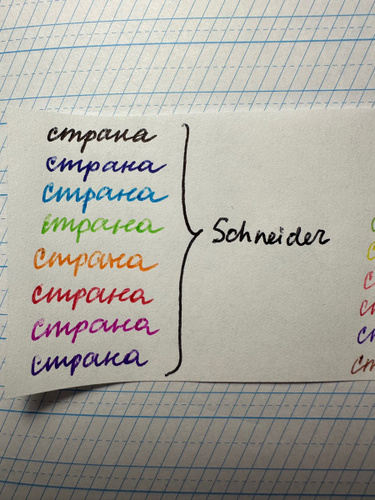 страна
страна
страна
страна
страна
страна
страна
страна
Schneider